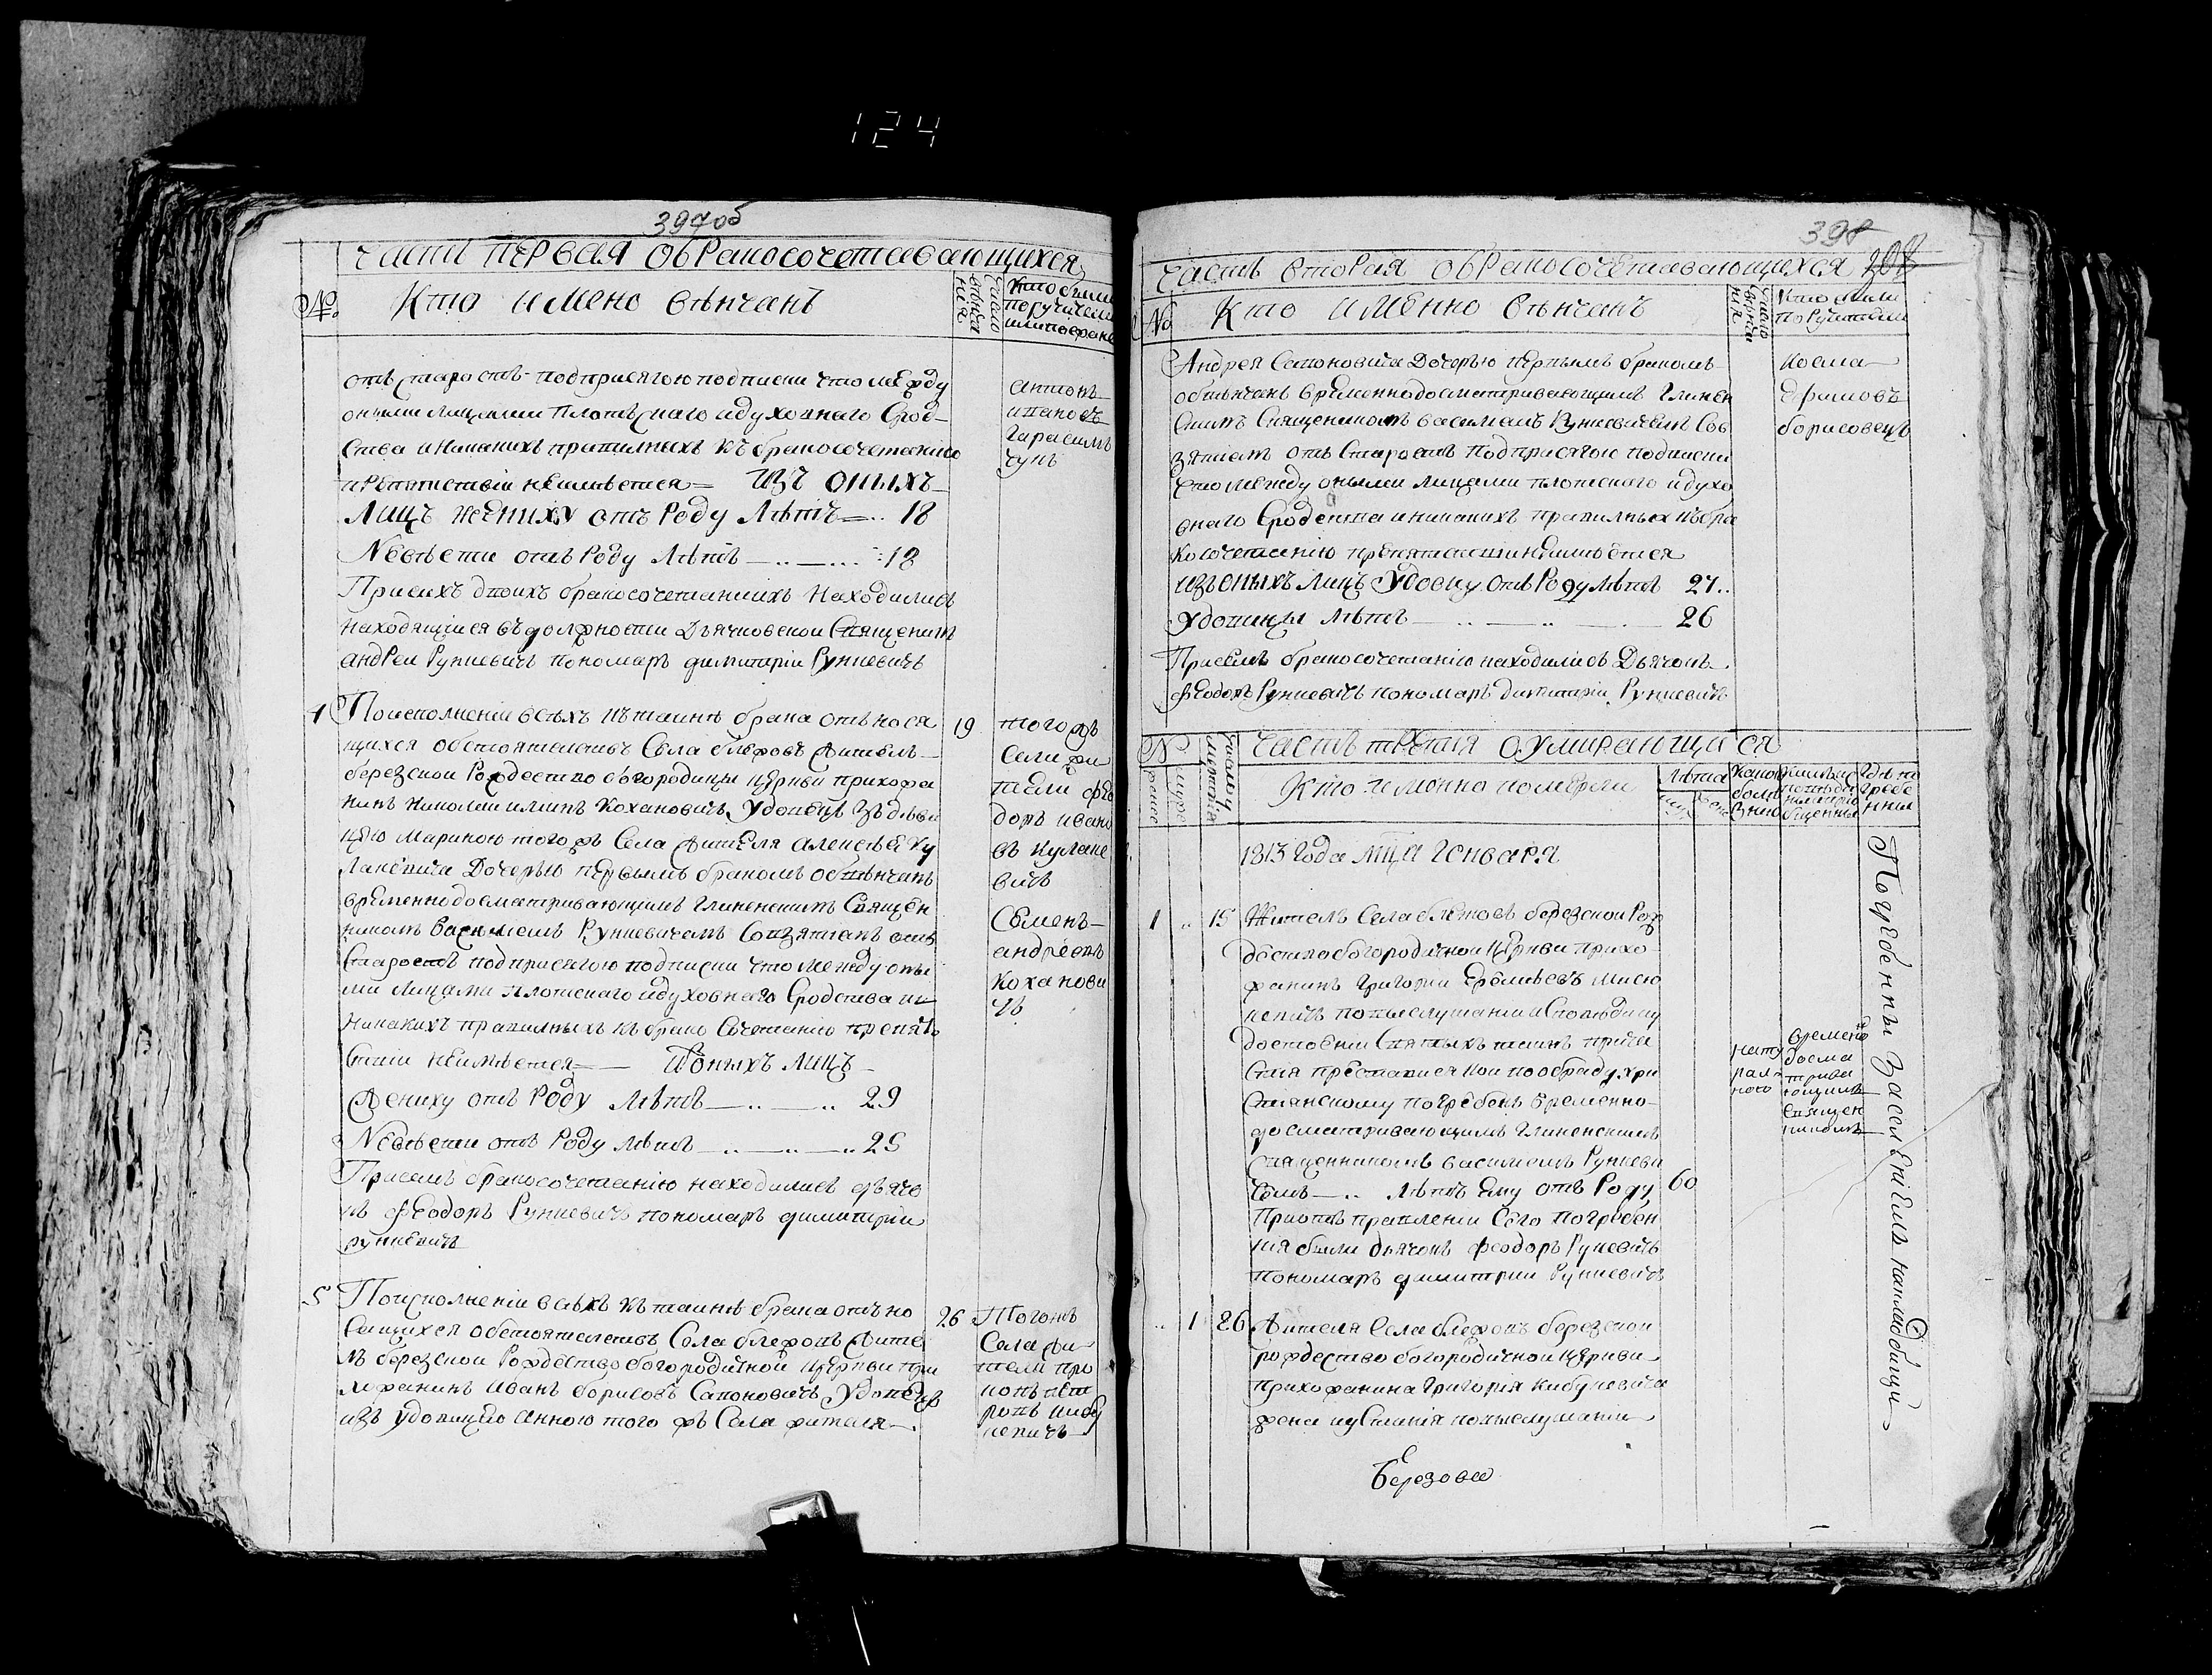 124
397об
часть первая обракосочетавающихся
№ Кто имено венчанъ
Кто были поручители
отъ старостъ подприсягою подписки что межъду
оными лицами плотскаго идуховнаго срод-
ства иникакихъ правилныхъ къ бракосочетанию
препятствии неимѣется= изъ оныхъ
Лицъ жениху отъ роду Лѣтъ 18
Невѣсти отъ роду Лѣтъ 18
Присихъ двоихъ бракосочетаниихъ находились
находящиися въдолжности Дьячковской священикъ
андреи Рункевичъ пономаръ димитрии Рункевичъ
антонъ
ивановъ
гарасимъ
4 Поисполнении всѣхъ къ таинѣ брака отъ нося 19
щихся обстоятелствъ Села блжовъ Жителъ
березскои Рождество богородицы церкви прихожа
нинъ николаи илинъ Кохановичъ Удовецъ зъ дѣви
цею Мариною того жъ Села жителя алексѣя Ку
лакевича Дочерью первымъ бракомъ обвѣнчанъ
временнодосматривающимъ глиненскимъ Священ
никомъ василиемъ Рункевичемъ созятиемъ отъ
Старостъ подприсягою подписки что между оны
ми лицами плотскаго идуховнаго Сродства ни
никакихъ правилныхъ къ брако Сочетанию препят
ствии неимѣется изоныхъ лицъ
Жениху отъ Роду лѣтъ 29
Невѣсти отъ Роду лѣтъ 25
Присемъ бракосочетанию находились дьячо
къ Феодоръ Рункевичъ пономаръ димитрии
рункевичъ
того жъ
Села жи
тели фео
доръ ивано
въ кулаке
вичъ
Семенъ
андреевъ
кохнови
чъ
5 Поисполнении всѣхъ къ таинѣ брака отъ но 26
сящихся обстоятелствъ Села блжовъ Жите
лъ березскои Рождество богородичнои церкви при
хожанинъ иванъ борисовъ Сапоновичъ Удовецъ
изъ удовицею анною того жъ Села жителя
Тогожъ
Села жи
тели про
копъ пет
ровъ кибу
кевичъ
398
208
часть вторая обракосочетавающихся
№ Кто именно вѣнчанъ
Кто были поручители
Андрея Сапоновича Дочерью первымъ бракомъ
обвѣнчанъ временнодосматривающимъ глинен
скимъ Священикомъ василиемъ Рункевичемъ Соз
зятиемъ отъ Старостъ подприсягою подписки
что между оными лицами плотскаго идухо
внаго Сродства иникакихъ правилныхъ къбра
косочетанию препятствии неимѣется
изъоныхъ лицъ Удовцу отъ Роду лѣтъ 27
Удовицы лѣтъ 26
Присемъ бракосочетанию находились Дьячокъ
Феодоръ Рункевичъ пономаръ димитрии Рункевичъ
косма
борисовецъ
№ часть третия оумирающихся
Кто именно померли
Лѣта
1813 года мца генваря
1 15 Жителъ Села блжовъ березскои Рож
дество богородичнои Церкви прихо
жанинъ григории
повыслушании исповѣди и у
достоении Святыхъ таинъ прича
стия преставися кои пообряду хри
стианскому погребенъ временно
досматривающимъ глиненскимъ
священникомъ василиемъ Рункеви
чемъ Лѣтъ ему отъ Роду 60
Приотъ правлении сего погребен
ния были дьячокъ феодоръ Рукевичъ
пономаръ димитрии Рункевичъ
нату
рал
ною
времено
досма
трива
ющимъ
священ
никомъ
Погребенны
1 26 Жителя Села блжовъ березскои
рождество богородичнои церкви
прихожанина григория кибукевича
жена иустиния повыслушании
Березово